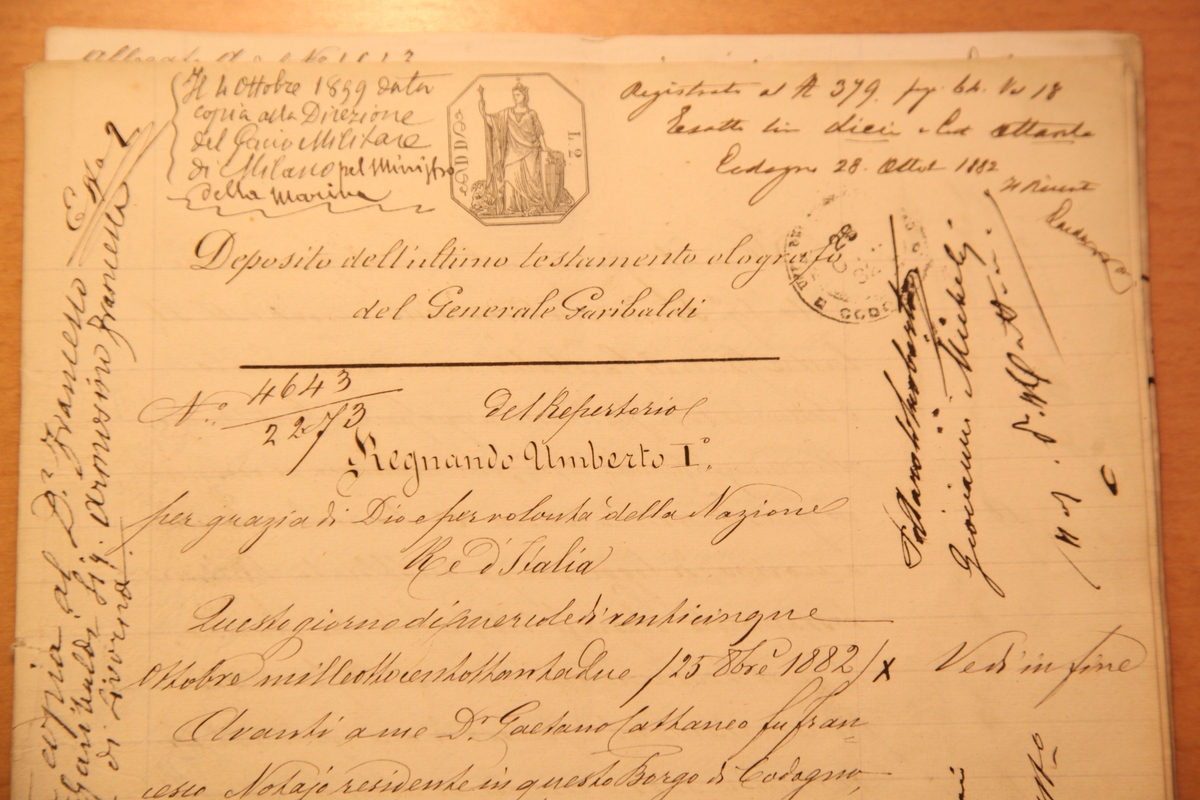 Il 4 Ottobre 1899 data
copia alla Direzione
del Genio Militare
di Milano pel Ministro
della Marina
L. 2
Registrato al N 379. pag. 64. Vol 18
Esatte Lire dieci e Cent ottanta
Codogno 28. Ottob 1882
Deposito dell'ultimo testamento olografo
del Generale Garibaldi
N.o 4643
2273
del Repertorio
Regnando Umberto I°.
per grazia di Dio e per volontà della Nazione
Re d'Italia
Quest giorno di mercoledì venticinque
Ottobre milleottocentottantadue /25 8bre 1882/ x Vedi in fine
Avanti a me Dr. Gaetano Cattaneo fu Fran=
cesco Notajo residente in questo Borgo di Codogno,
copia al
Garibaldi Sig. armosino Francesca
di Livorno
Giovanni Micheli